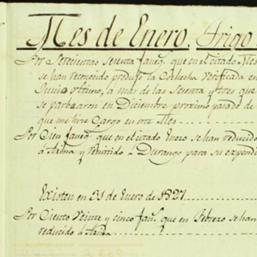 Mes de Enero. Trigo
Por Setecientas Setenta fanegs. que en el citado Mes
se han reconocido produjo la Cosecha Verificada en
Otimo, a mas de las Setenta y tres que
se en Diciembre proximo pasado de
que me hice Cargo en otro Mes
Por Cien fanegs. que en el citado Enero se han reducido
á Harina y remitido á Durango para su expendio
Existen en 31 de Enero de 1827
Por Ciento Veinte y cinco fans. que en Febrero se han
reducido á Harina